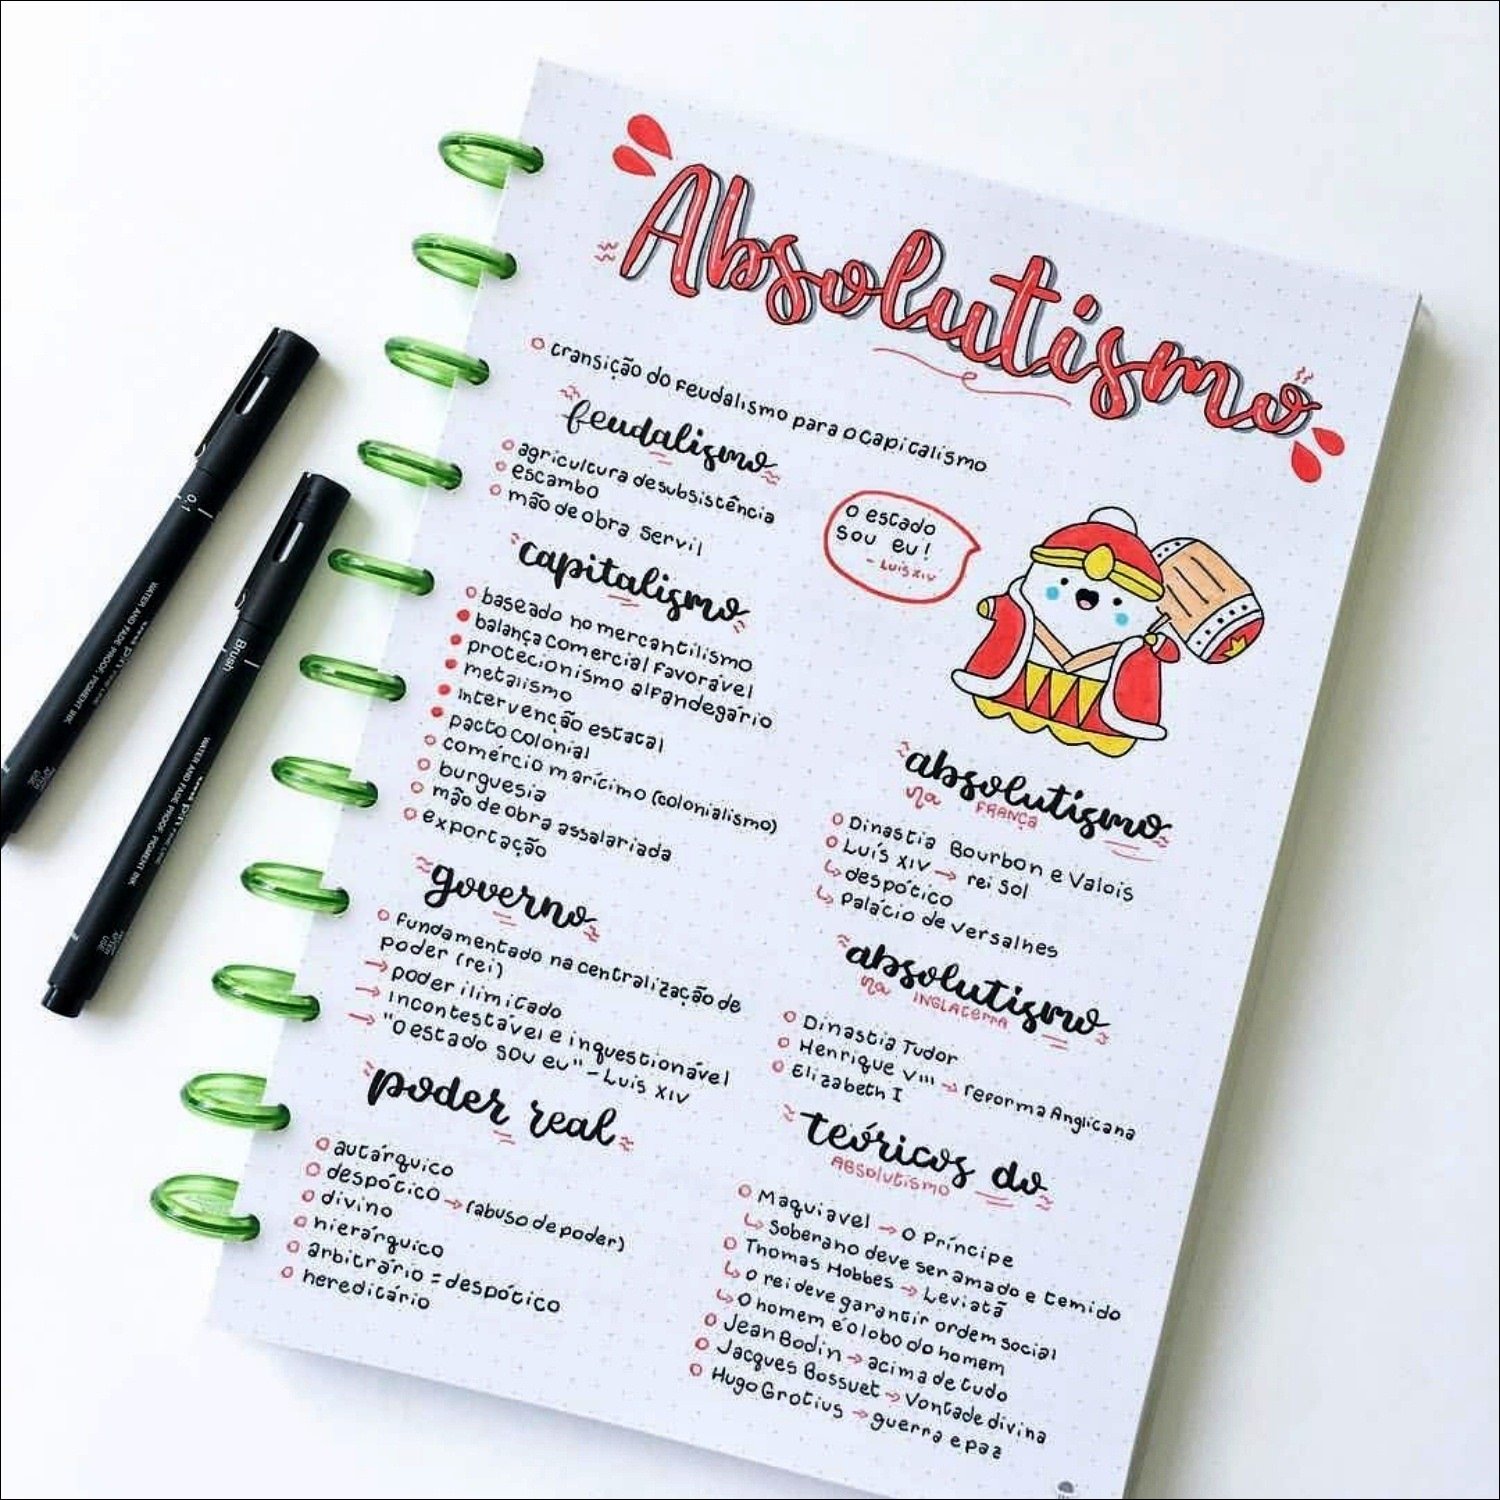 Absolutismo
transição do feudalismo para o capitalismo
feudalismo
agricultura de subsistência
escambo
mão de obra servil
capitalismo
baseado no mercantilismo
balança comercial favorável
protecionismo alfandegário
metalismo
intervenção estatal
pacto colonial
comércio marítimo (colonialismo)
burguesia
mão de obra assalariada
exportação
governo
fundamentado na centralização de
poder (rei)
→ poder ilimitado
→ incontestável e inquestionável
→ "O estado sou eu" - Luís XIV
poder real
autárquico
despótico → (abuso de poder)
divino
hierárquico
arbitrário = despótico
hereditário
O estado
sou eu!
- Luís XIV
absolutismo
na FRANÇA
Dinastia Bourbon e Valois
Luís XIV → rei sol
↳ despótico
↳ palácio de versalhes
absolutismo
na INGLATERRA
Dinastia Tudor
Henrique VIII → reforma Anglicana
Elizabeth I
teóricos do
ABSOLUTISMO
Maquiavel → O Príncipe
↳ Soberano deve ser amado e temido
Thomas Hobbes → Leviatã
↳ o rei deve garantir ordem social
↳ O homem é o lobo do homem
Jean Bodin → acima de tudo
Jacques Bossuet → Vontade divina
Hugo Grotius → guerra e paz
0.1
WATER AND FADE PROOF, PIGMENT INK
Brush
WATER AND FADE PROOF, PIGMENT INK